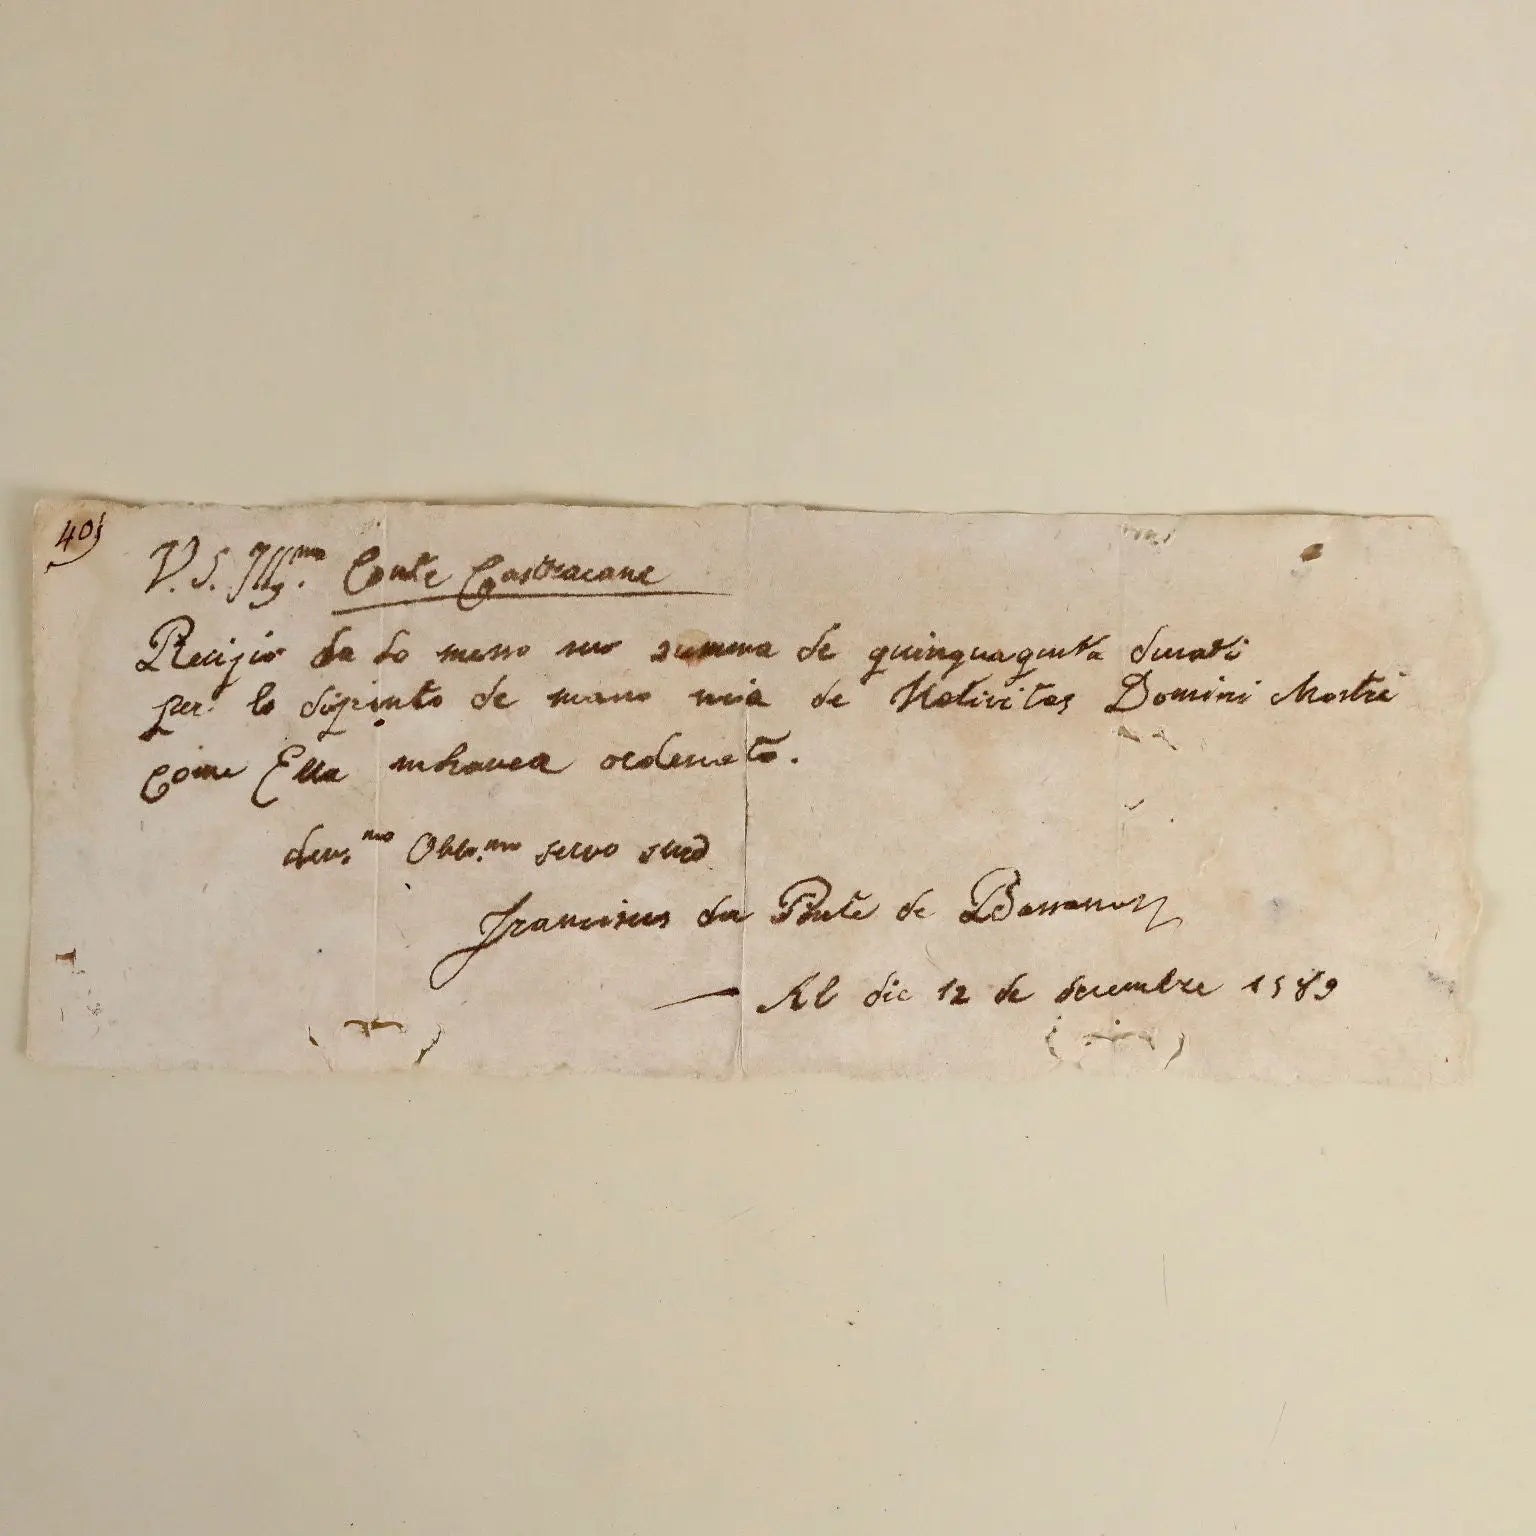 40)
V. S. Illmo. Conte Castracane
Recipio da lo messo suo summa de quinquaginta ducati
per lo dipinto de mano mia de Nativitas Domini Nostri
come Ella m'havea ordenato.
dev.mo Obb.mo servo suo
Franciscus da Ponte de Bassano
Al die 12 de decembre 1589